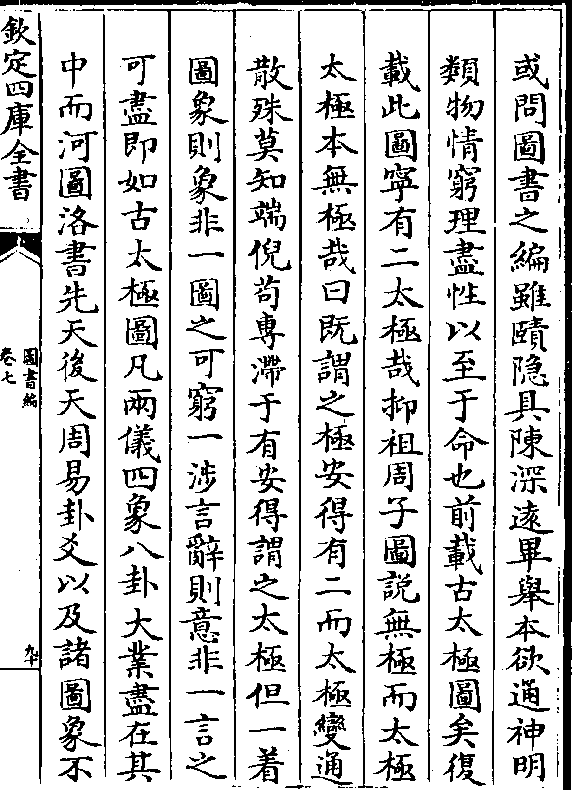 或問圖書之編雖賾隐具陳深遠畢舉本欲通神明
類物情窮理盡性以至于命也前載古太極圖矣復
載此圖寧有二太極哉抑祖周子圖說無極而太極
太極本無極哉曰既謂之極安得有二而太極變通
散殊莫知端倪茍專滯于有安得謂之太極但一着
圖象則象非一圖之可窮一涉言辭則意非一言之
可盡即如古太極圖凡兩儀四象八卦大業盡在其
中而河圖洛書先天後天周易卦爻以及諸圖象不
欽定四庫全書
圖書編
卷七
九十